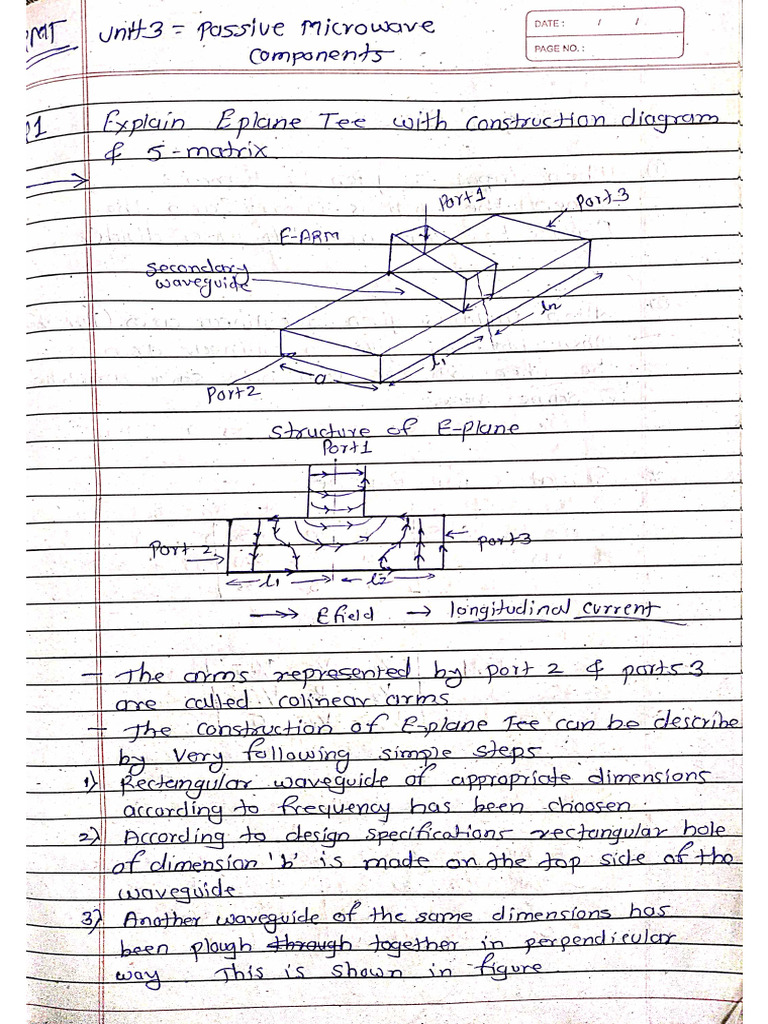 RMT
Unit 3 = Passive Microwave
Components
DATE : / /
PAGE NO. :
Q1 Explain E plane Tee with construction diagram
& S-matrix
Port 1
Port 3
E-ARM
Secondary
waveguide
l2
l1
a
Port 2
Structure of E-plane
Port 1
Port 2
Port 3
l1 l2
E field → longitudinal current
- The arms represented by port 2 & ports 3
are called colinear arms
- The construction of E-plane Tee can be describe
by very following simple steps
1) Rectemgular waveguide of appropriate dimensions
according to frequency has been choosen.
2) According to design specifications rectangular hole
of dimension 'b' is made on the top side of the
waveguide
3) Another waveguide of the same dimensions has
been plough through together in perpendicular
way. This is shown in figure